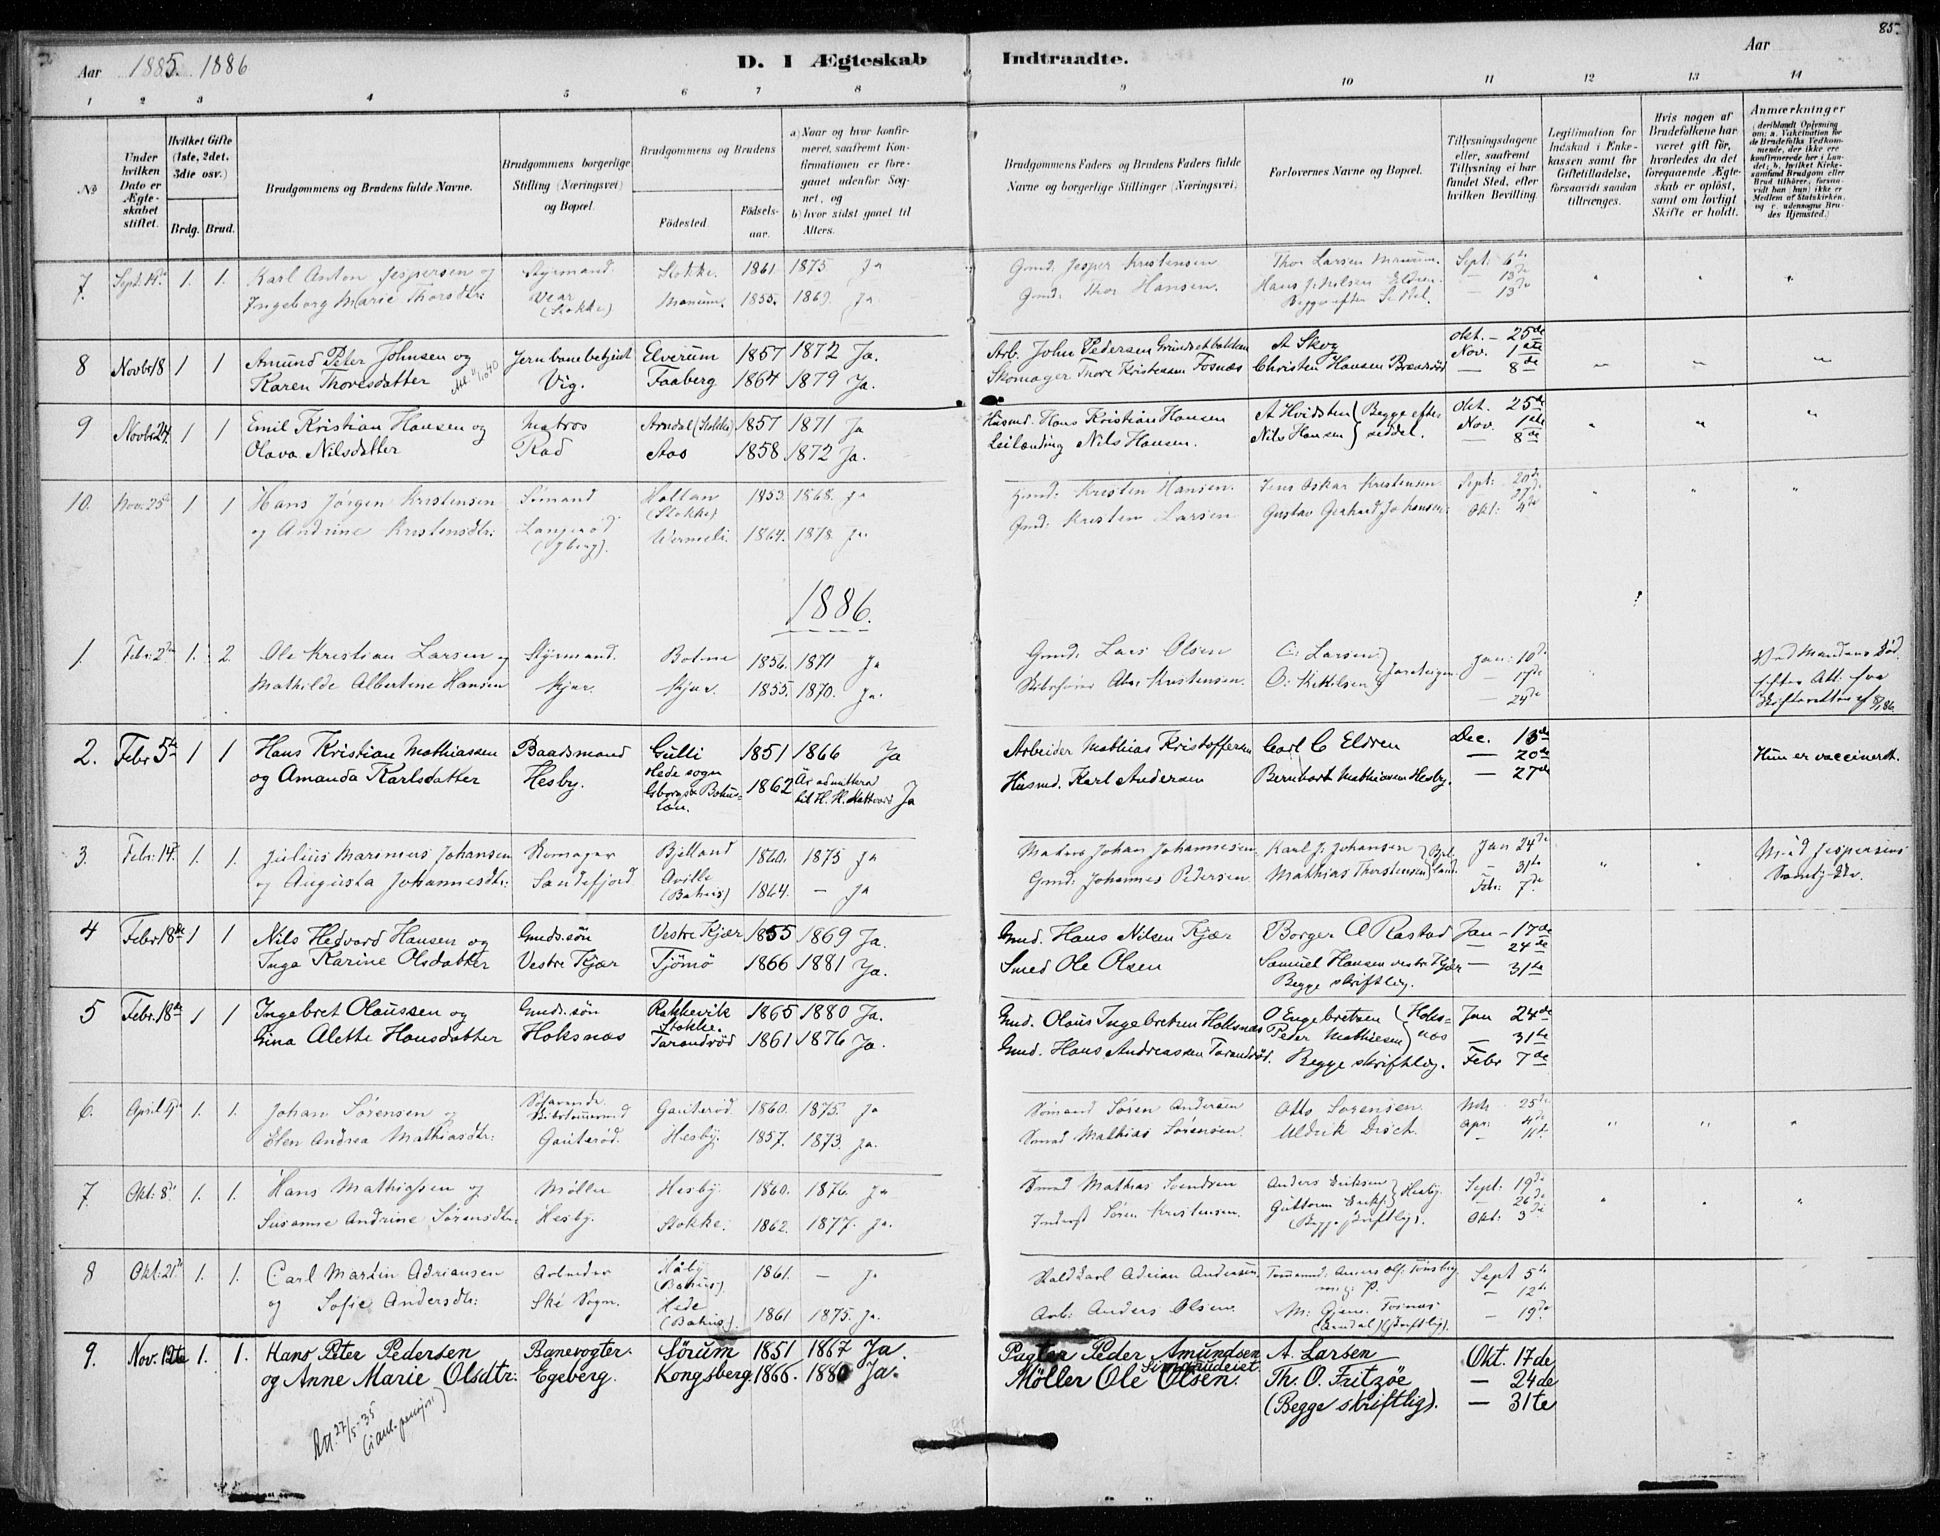 85.
Aar 1885. 1886
D. I Ægteskab Indtraadte.
Aar
1 2 3 4 5 6 7 8 9 10 11 12 13 14
No
Under hvilken Dato er Ægteskabet stiftet.
Hvilket Gifte (1ste, 2det, 3die osv.)
Brdg. Brud.
Brudgommens og Brudens fulde Navne.
Brudgommens borgerlige Stilling (Næringsvei) og Bopæl.
Brudgommens og Brudens
Fødested.
Fødselsaar.
a) Naar og hvor konfirmeret, saafremt Konfirmationen er foregaaet udenfor Sognet, og
b) hvor sidst gaaet til Alters.
Brudgommens Faders og Brudens Faders fulde Navne og borgerlige Stillinger (Næringsvei).
Forlovernes Navne og Bopæl.
Tillysningsdagene eller, saafremt Tillysning ei har fundet Sted, efter hvilken Bevilling.
Legitimation for Indskud i Enkekassen samt for Giftetilladelse, forsaavidt saadan tiltrænges.
Hvis nogen af Brudefolkene har været gift før, hvorledes da det foregaaende Ægteskab er opløst, samt om lovligt Skifte er holdt.
Anmærkninger (deriblandt Oplysning om: a. Vakcination for de Brudefolks Vedkommende, der ikke ere konfirmerede her i Landet; b. hvilket Kirkesamfund Brudgom eller Brud tilhører, forsaavidt han (hun) ikke er Medlem af Statskirken, og c. udensogns Brudes Hjemsted.)
7. Sept. 19de 1. 1. Karl Anton Jespersen og Styrmand. Stokke. 1861 1875 Ja Gmd. Jesper Kristensen Thor Larsen Manum. Sept: 6te
Ingeborg Marie Thorsdtr: Vear (Stokke) Manum. 1855. 1869. Ja Gmd. Thor Hansen. Hans J. Nilsen Eldren — 13de
Begge efter Seddel.
8 Novbr 18 1 1 Amund Peter Johnsen og Jernbanebetjent Elverum 1857 1872 Ja. Arb. John Pedersen Grindsetbakken A Skog Okt. — 25de
Karen Thoresdatter Vig. Faaberg 1864 1879 Ja. Skomager Thore Kristensen Fosnæs Christen Hansen Brændsrød Nov. 1ste
— 8de
9 Novbr 24 1 1 Emil Kristian Hansen og Matros Arndal (Stokke) 1857 1871 Ja Husmd. Hans Kristian Hansen A Hvidsten Begge efter Okt. 25de
Olava Nilsdatter Rød Aas 1858 1872 Ja. Leilænding Nils Hansen. Nils Hansen seddel. Nov. 1ste
— 8de
10. Nov: 25de 1 1 Hans Jørgen Kristensen Sømand Holtan (Stokke) 1853. 1868. Ja Gmd: Kristen Hansen. Jens Oskar Kristensen Sept: 20de
27de
og Andrine Kristensdtr: Langerød Wermeli. 1864. 1878. Ja. Gmd: Kristen Larsen Gustav Gerhard Johansen Okt: 4de
1886.
1. Febr: 2den 1. 2. Ole Kristian Larsen og Styrmand. Botne 1856. 1871 Ja Gmd: Lars Olsen C. Larsen Jan: 10de
Mathilde Albertine Hansen Kjær. Kjær. 1855. 1870. Ja. Skibsfører Abr. Kristensen. O. Kittilsen — 17de
— 24de
Ved Mandens Død.
2. Febr 5te 1 1 Hans Kristian Mathiassen Baadsmand Gulli 1851 1866 Ja Arbeider Mathias Kristoffersen Carl C Eldren Dec. 13de
— 20de
og Amanda Karlsdatter Hesby. Hede sogn 1862 Är admittera Husmd. Karl Andersen Bernhart Mathiasen Hesby. — 27de
til H. H. Nattvard Ja
Hun er vaccineret.
3. Febr: 14. 1. 1. Julius Marinius Johansen Skomager Bjelland 1860. 1875 Ja Matros Johan Johannesen Karl J. Johansen Jan 24de
og Augusta Johannesdtr: Sandefjord. Aville (Bahus) 1864. — Ja Gmd: Johannes Pedersen Mathias Thorstensen — 31te
Febr: 7de
4 Febr 18de 1 1 Nils Hedvard Hansen og Gmds. søn Vestre Kjær 1855 1869 Ja. Gmd. Hans Nilsen Kjær Borger A Rastad Jan — 17de
— 24de
Inga Karine Olsdatter Vestre Kjær Tjömö 1866 1881 Ja. Smed Ole Olsen Samuel Hansen vestre Kjær — 31te
Begge skriftlig.
5 Febr. 18de 1 1 Ingebret Olaussen og Gmds. søn Rakkevik Stokke. 1865 1880 Ja. Gmd. Olaus Ingebretsen Hoksnæs O Engebretsen Hoksnæs Jan 24de
Gina Alette Hansdatter Hoksnæs Tarandrød 1861 1876 Ja. Gmd. Hans Andreassen Tarandrød. Peder Mathiesen — 31te
Begge skriftlig. Febr 7de
6. April 17de 1. 1. Johan Sørensen og Søfarende Gauterød. 1860. 1875. Ja Sømand Søren Andersen Otto Sørensen Mrts 25de
Elen Andrea Mathiasdtr: Gauterød. Hesby. 1857. 1873. Ja. Sømd Mathias Sørensen. Uldrik Disch. Apr: 4de
— 11te
7. Okt: 8de 1. 1. Hans Mathiassen og Møller Hesby. 1860. 1876. Ja Sømd Mathias Svendsen Anders Eriksen Hesby. Sept: 19de
Susanne Andrine Sørensdtr: Hesby. Stokke. 1862. 1877. Ja. Inderst Søren Kristensen. Guttorm — 26de
(Begge skriftlig). Okt: 3die
8 Okt. 21de 1. 1. Carl Martin Adriansen Arbeider Håby (Bahus) 1861. — Ja Adrian Andersen Sept 5te
— 12te
og Sofie Andersdtr: Ské Sogn. Hede (Bahus). 1861 1875. Ja. Arb: Anders Olsen. M: Gjene. Fosnæs — 19de
(Arndal) (Skriftlig).
9. Nov. 12te 1. 1. Hans Peter Pedersen Banevogter. Sörum 1851 1867 Ja. Pagter Peder Amundsen A. Larsen Okt. 17de
og Anne Marie Olsdtr: Egeberg. Kongsberg 1866. 1880 Ja. Møller Ole Olsen. Th. O. Fritzöe — 24de
(Begge skriftlig). — 31te
Att. 27/5-35